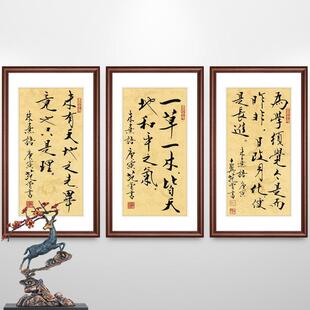 為學須覺今是而
昨非日改月化便
是長進 朱熹語 庚寅
書
一草一木皆天
地和平之氣
朱熹語 庚寅 書
未有天地之先畢
竟也只是理
朱熹語 庚寅 書